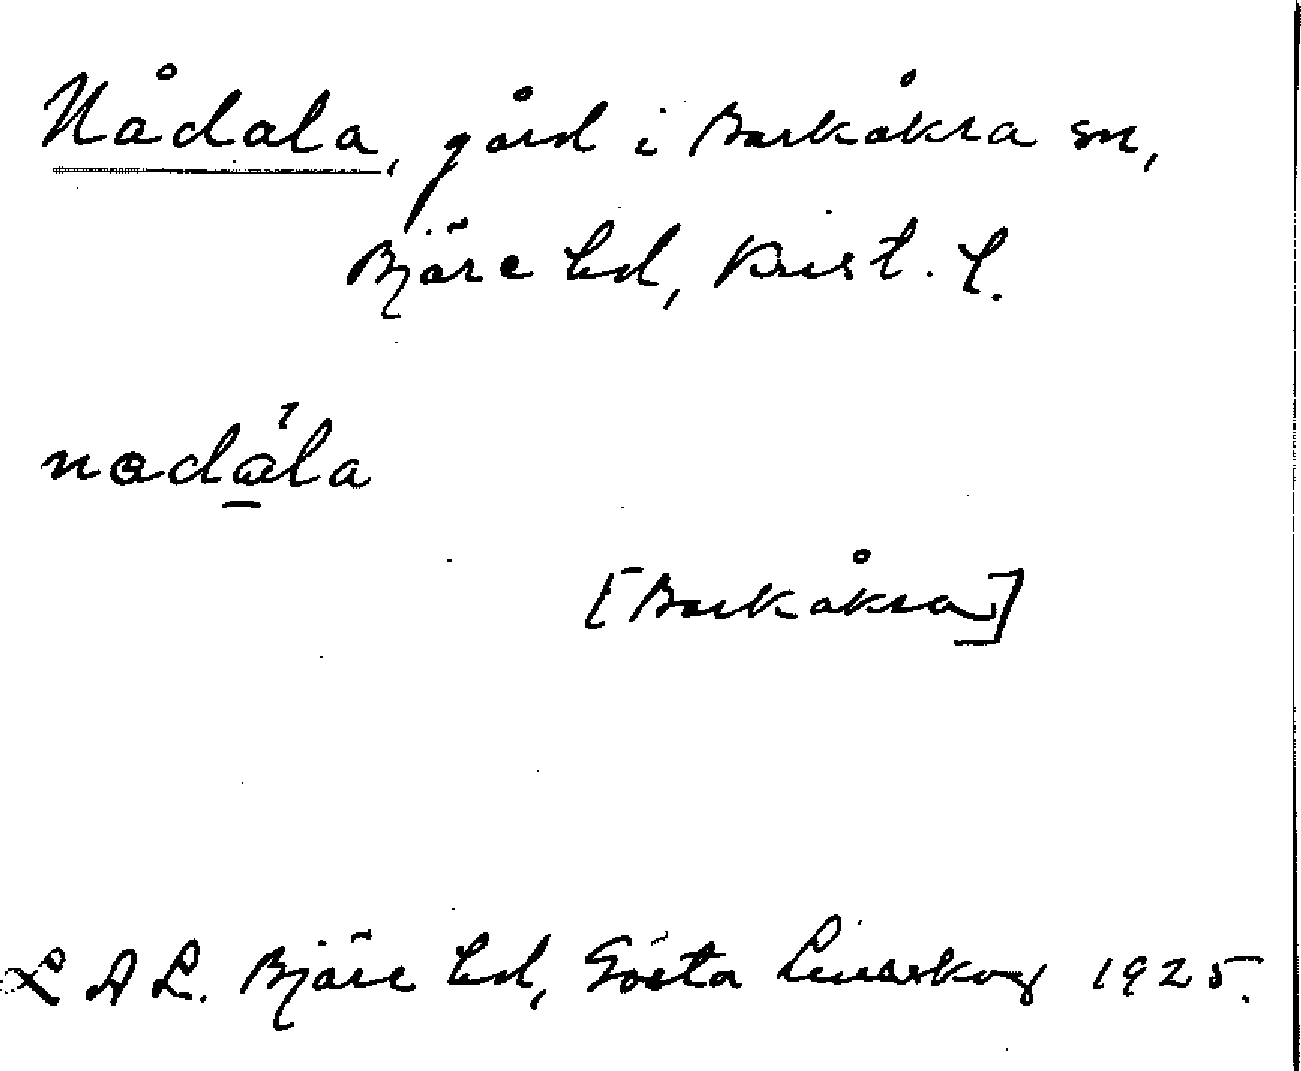 Nådala, gård i Barkåkra sn,
Bjäre hd, Krist. l.
nadála
[Barkåkra]
L A L. Bjäre hd, Gösta 1925.